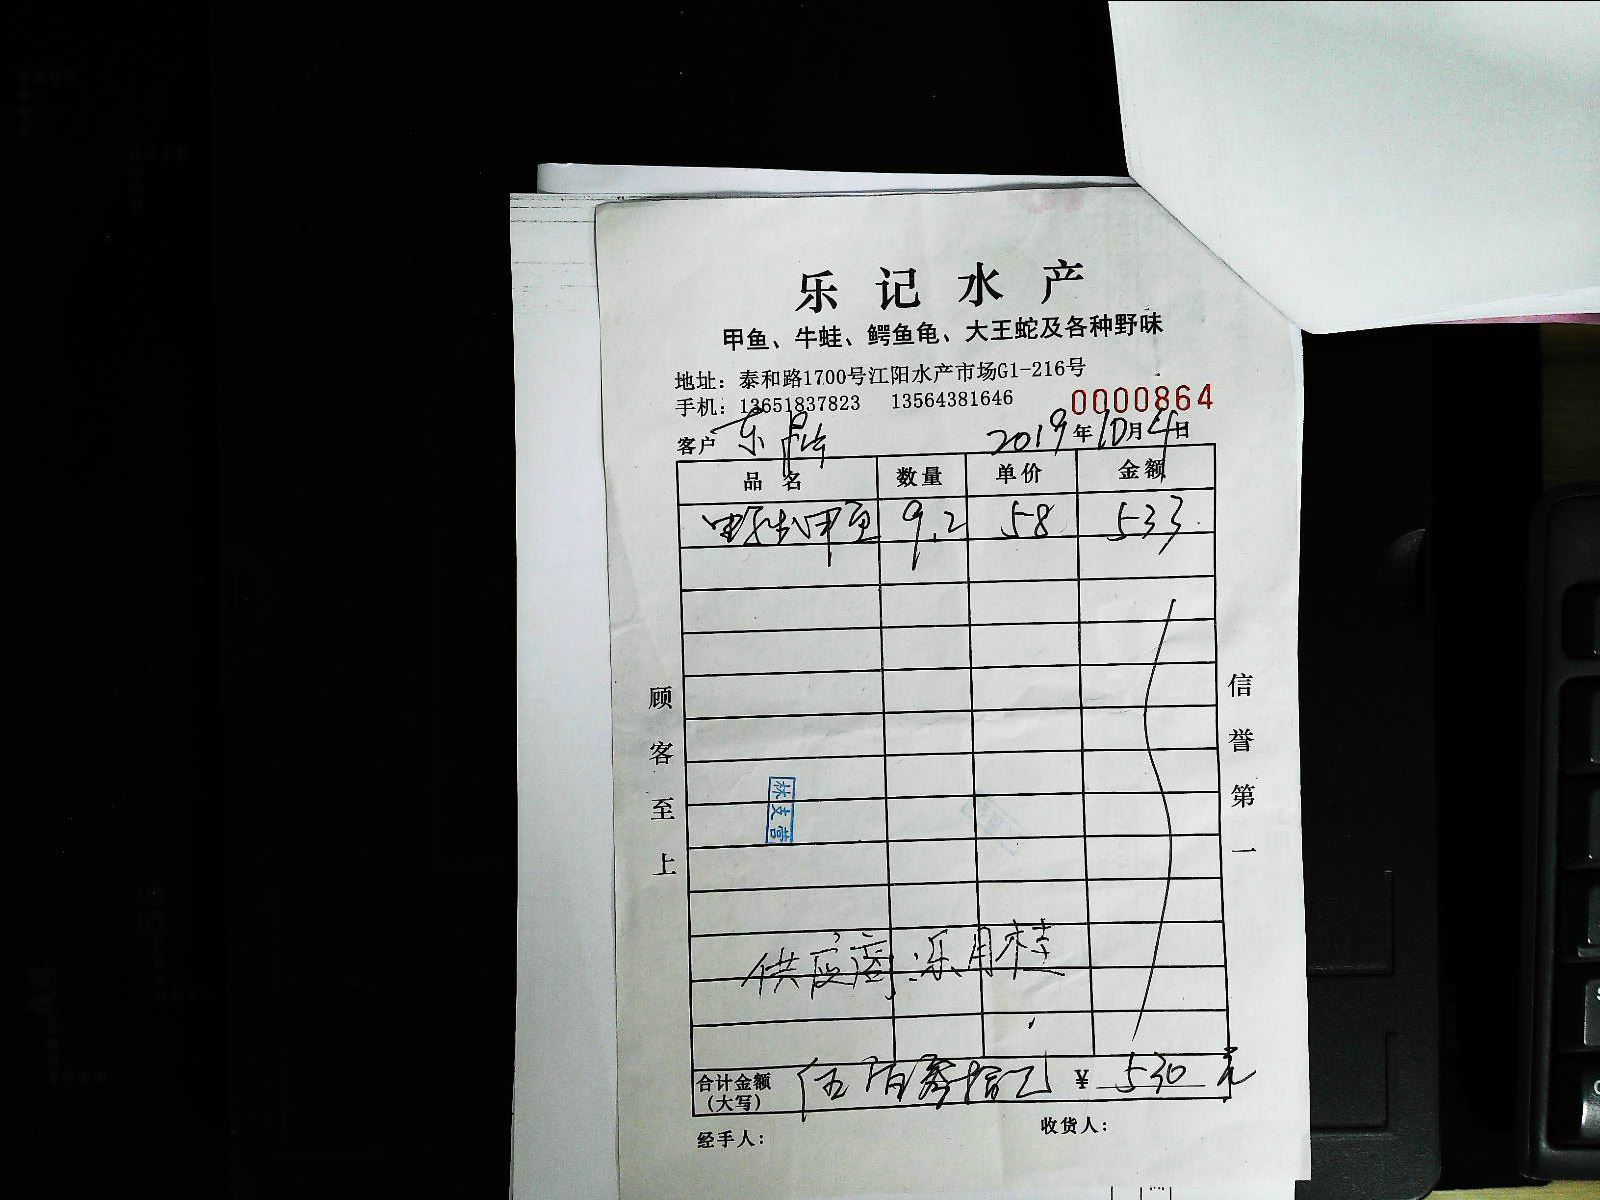 乐记水产
甲鱼、牛蛙、鳄鱼龟、大王蛇及各种野味
地址：泰和路1700号江阳水产市场G1-216号
手机：13651837823 13564381646
0000864
客户 东 2019年10月4日
品名 数量 单价 金额
野生甲鱼 9.2 58 533
顾客至上
信誉第一
林支营
供应商：乐月桂
合计金额(大写) 伍佰叁拾 ¥ 530元
经手人：
收货人：